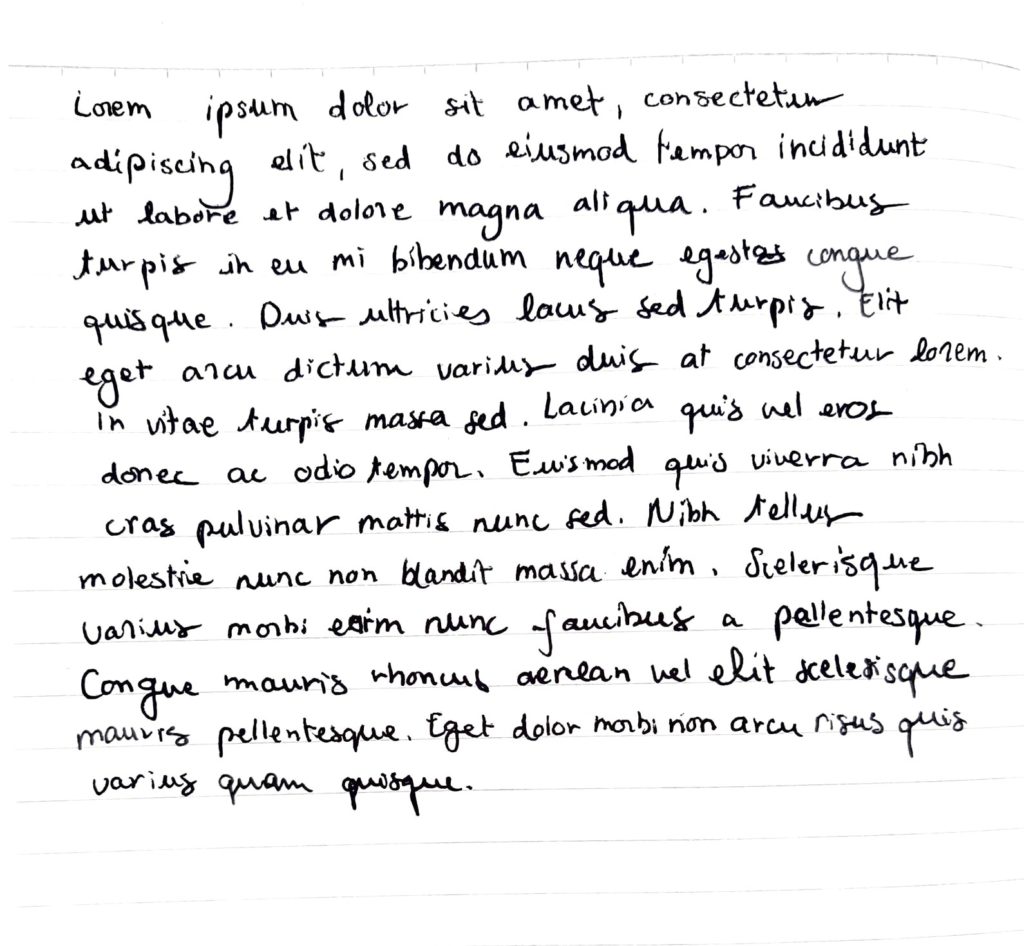 Lorem ipsum dolor sit amet, consectetur
adipiscing elit, sed do eiusmod tempor incididunt
ut labore et dolore magna aliqua. Faucibus
turpis in eu mi bibendum neque egestas congue
quisque. Duis ultricies lacus sed turpis. Elit
eget arcu dictum varius duis at consectetur lorem.
In vitae turpis massa sed. Lacinia quis vel eros
donec ac odio tempor. Euismod quis viverra nibh
cras pulvinar mattis nunc sed. Nibh tellus
molestie nunc non blandit massa enim. Scelerisque
varius morbi enim nunc faucibus a pellentesque.
Congue mauris rhoncus aenean vel elit scelerisque
mauris pellentesque. Eget dolor morbi non arcu risus quis
varius quam quisque.